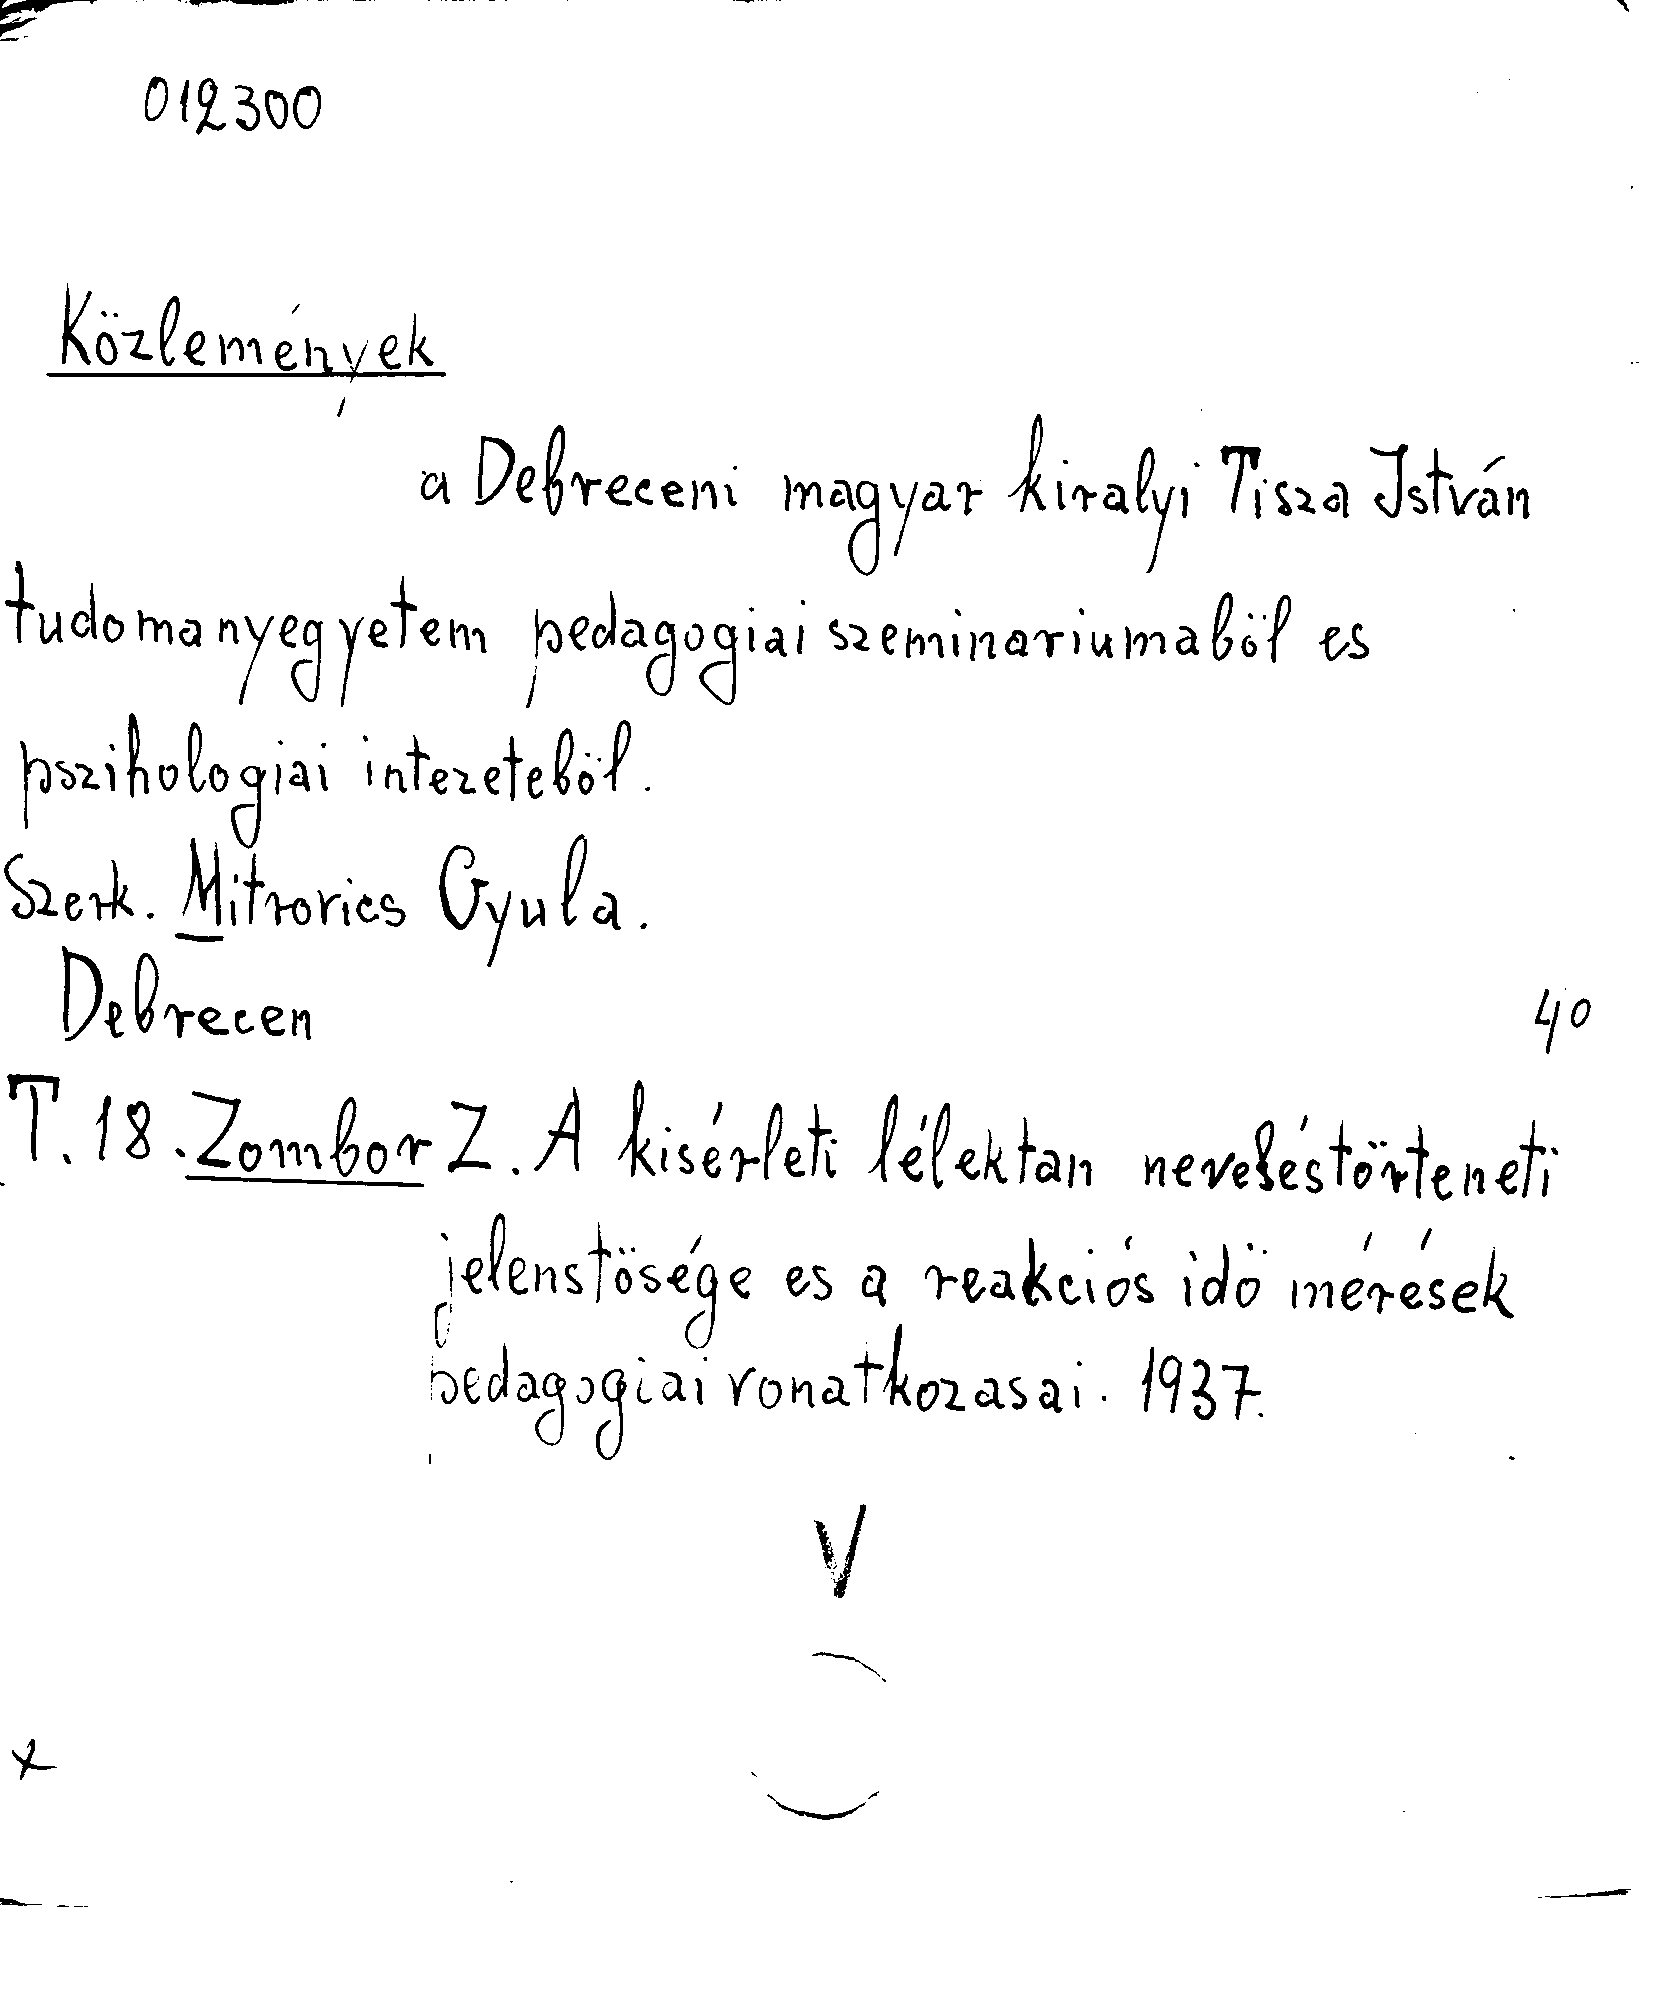 012300
Közlemények
a Debreceni magyar kiralyi Tisza István
tudomanyegyetem pedagogiai szeminariumaböl es
pszihologiai intezeteböl.
Szerk. Mitrovics Gyula.
Debrecen 40
T. 18. Zombor Z. A kisérleti lélektan neveléstörteneti
jelenstösége es a reakciós idö mérések
pedagogiai vonatkozasai. 1937.
V
x